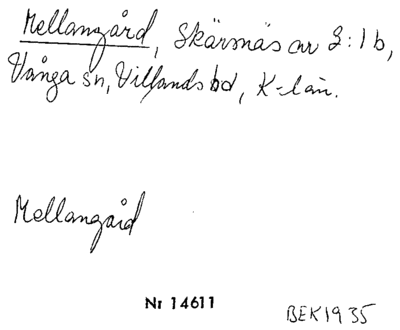 Mellangård, Skärsnäs av 2:1b,
Vånga sn, Villands hd, K-län.
Mellangård
Nr 14611
BEK 1935